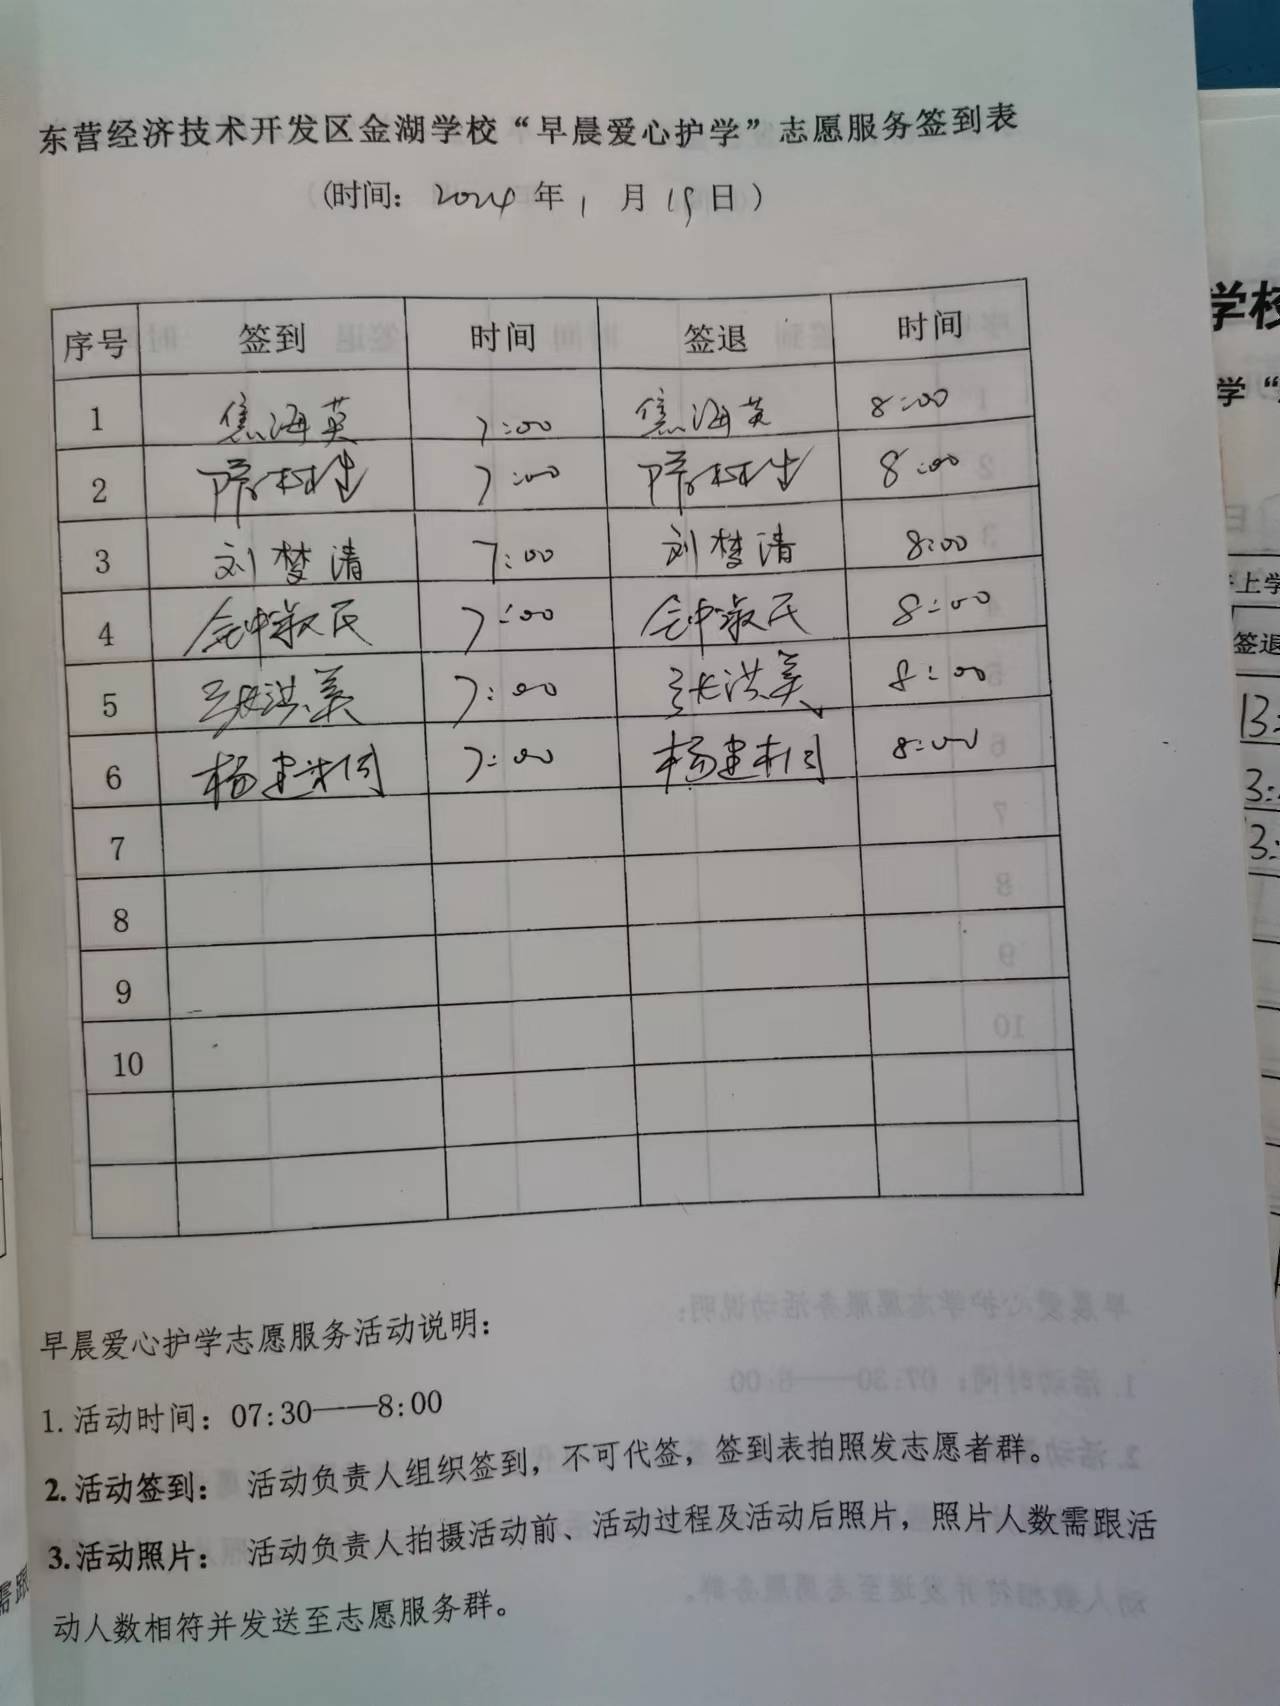 东营经济技术开发区金湖学校“早晨爱心护学”志愿服务签到表
(时间: 2024年 1 月 19日)
序号 签到 时间 签退 时间
1 焦海英 7:00 焦海英 8:00
2 7:00 8:00
3 刘梦清 7:00 刘梦清 8:00
4 7:00 8:00
5 张洪美 7:00 张洪美 8:00
6 7:00 8:00
7
8
9
10
早晨爱心护学志愿服务活动说明:
1. 活动时间: 07:30——8:00
2. 活动签到: 活动负责人组织签到, 不可代签, 签到表拍照发志愿者群。
3. 活动照片: 活动负责人拍摄活动前、活动过程及活动后照片, 照片人数需跟活
动人数相符并发送至志愿服务群。
学校
学“
上学
签退
13:
3:
3: